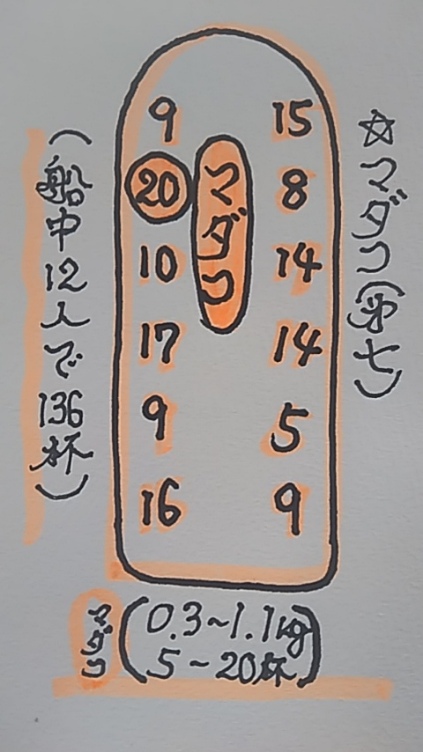 ☆マダコ(第七)
マダコ
9 15
20 8
10 14
17 14
9 5
16 9
(船中12人で136杯)
マダコ
0.3~1.1kg
5~20杯